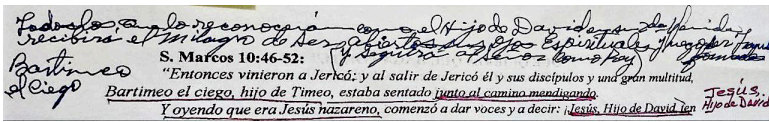 Todos los que lo reconocerán como el Hijo de David y su
recibirá el Milagro de Ser abiertos sus Ojos Espirituales y luego
(y seguirá al Señor como fiel
Bartimeo
el Ciego
S. Marcos 10:46-52:
"Entonces vinieron a Jericó; y al salir de Jericó él y sus discípulos y una gran multitud,
Bartimeo el ciego, hijo de Timeo, estaba sentado junto al camino mendigando.
Y oyendo que era Jesús nazareno, comenzó a dar voces y a decir: ¡Jesús, Hijo de David, ten
Jesús,
Hijo de David